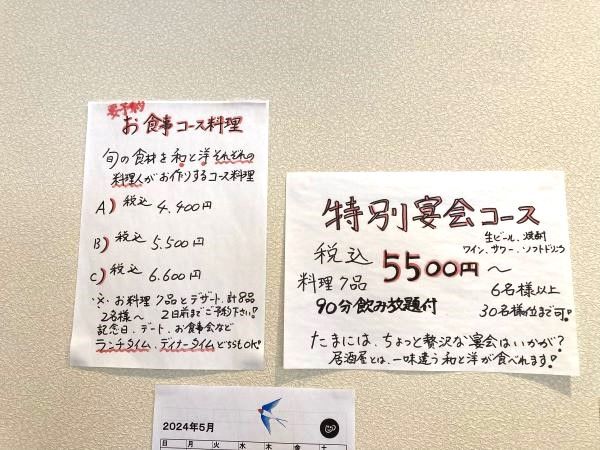 要予約
お食事コース料理
旬の食材を和と洋それぞれの
料理人がお作りするコース料理
A) 税込 4.400円
B) 税込 5.500円
C) 税込 6.600円
※ お料理7品とデザート、計8品
2名様〜 2日前までご予約下さい!
記念日、デート、お食事会など
ランチタイム、ディナータイムどちらもOK!
特別宴会コース
生ビール、焼酎
ワイン、サワー、ソフトドリンク
税込 5500円〜
料理7品
6名様以上
90分飲み放題付
30名様位まで可!
たまには、ちょっと贅沢な宴会はいかが?
居酒屋とは、一味違う和と洋が食べれます!
2024年5月
日 月 火 水 木 金 土